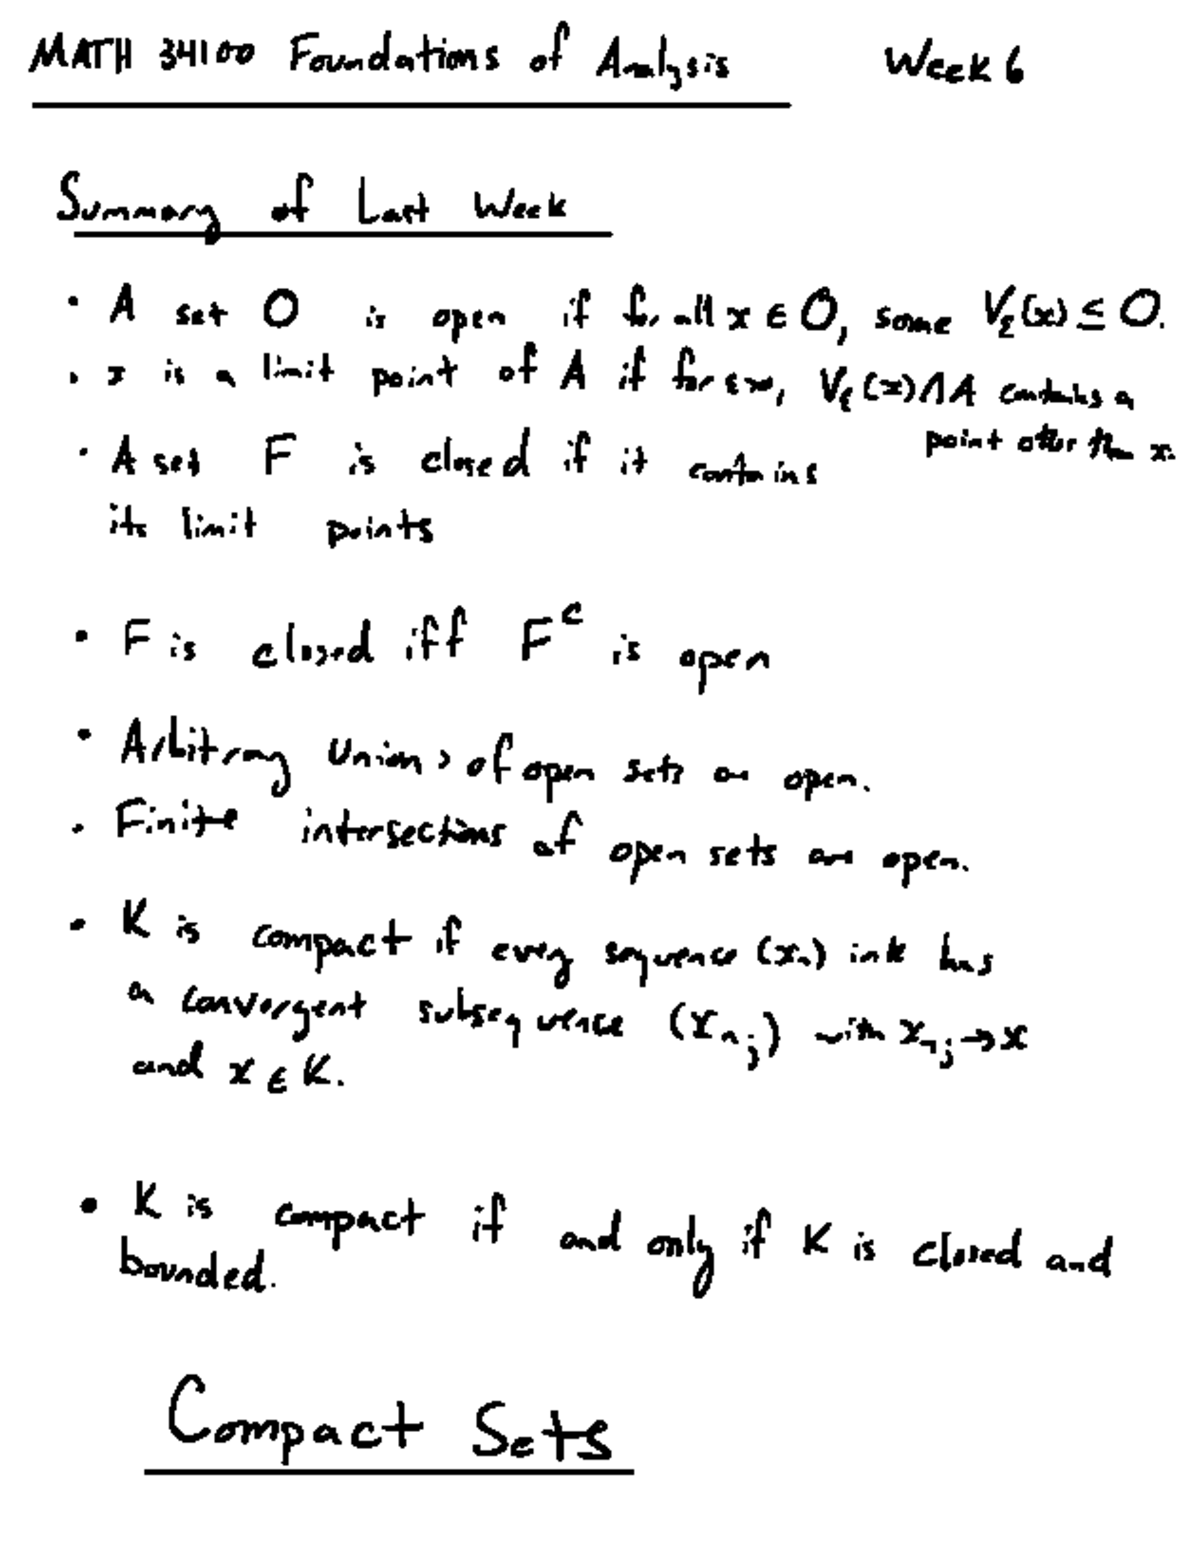 MATH 34100 Foundations of Analysis Week 6
Summary of Last Week
• A set O is open if for all x ∈ O, some Vε(x) ⊆ O.
• x is a limit point of A if for ε>0, Vε(x)∩A contains a
point other than x.
• A set F is closed if it contains
its limit points
• F is closed iff F^c is open
• Arbitrary unions of open sets are open.
• Finite intersections of open sets are open.
• K is compact if every sequence (xₙ) in K has
a convergent subsequence (x_{n_j}) with x_{n_j} → x
and x ∈ K.
• K is compact if and only if K is closed and
bounded.
Compact Sets